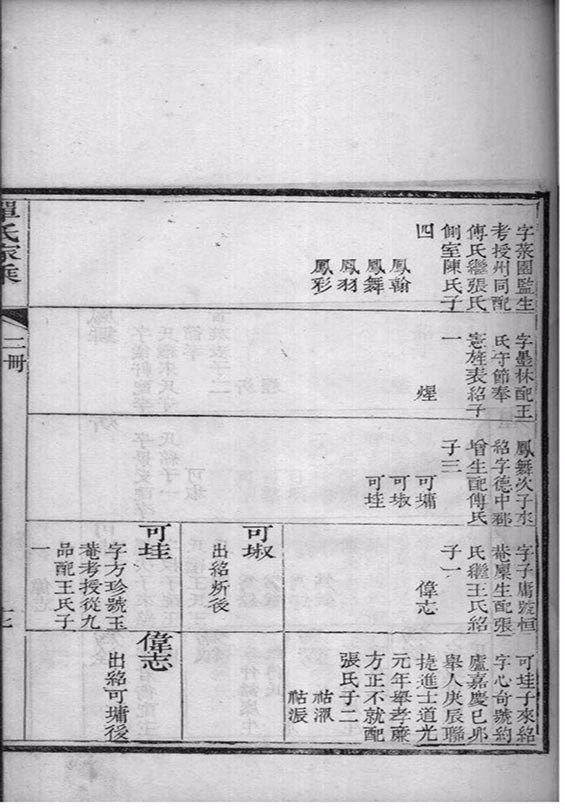 字萊園監生
考授州同配
傅氏繼張氏
側室陳氏子
四
鳳翰
鳳舞
鳳羽
鳳彩
字墨林配王
氏守節奉
憲旌表紹子
一
煋
鳳舞次子來
紹字德中郡
增生配傅氏
子三
可墉
可埱
可垟
字子庸號恒
菴廩生配張
氏繼王氏紹
子一
偉志
可埱
出紹炘後
可垟
字方珍號玉
菴考授從九
品配王氏子
一
可垟子來紹
字心奇號約
廬嘉慶己卯
舉人庚辰聯
捷進士道光
元年舉孝廉
方正不就配
張氏子二
祜派
祜漲
偉志
出紹可墉後
單氏家乘
二冊